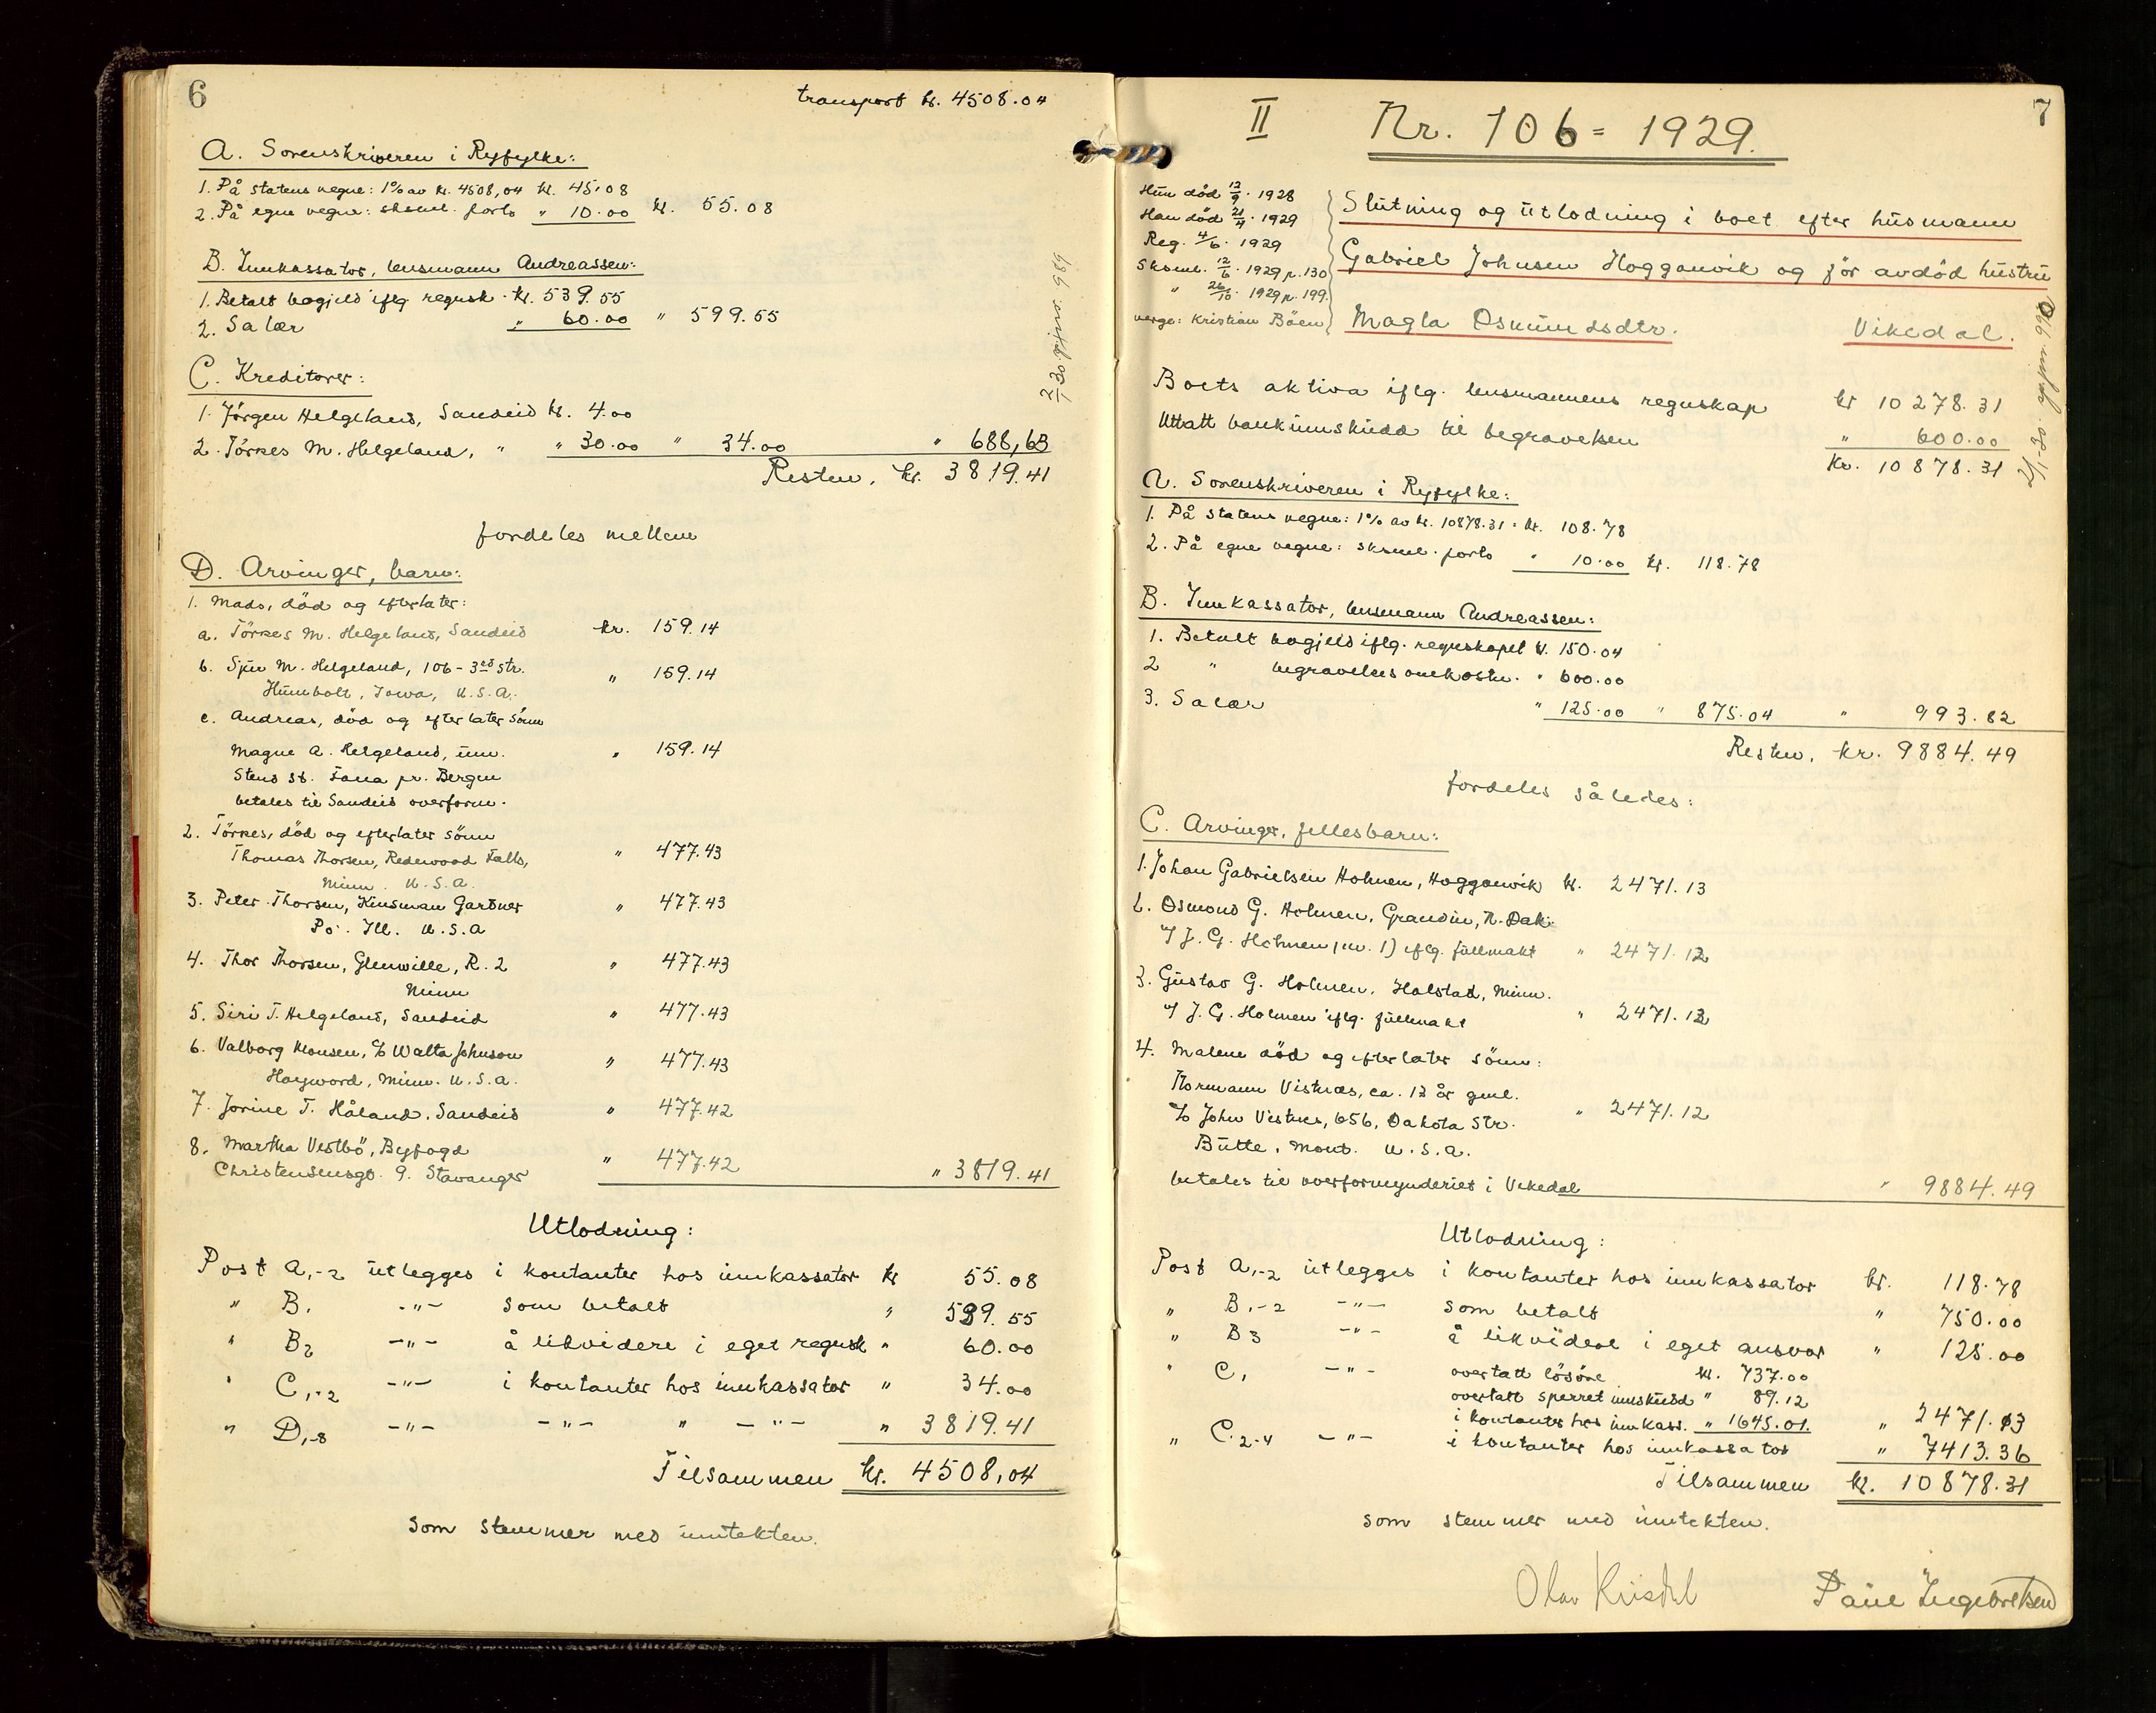 6
transport kr. 4508.04
A. Sorenskriveren i Ryfylke:
1. På statens vegne: 1% av kr. 4508,04 kr. 45.08
2. På egne vegne: sksml. porto " 10.00 kr. 55.08
B. Innkassator, lensmann Andreassen:
1. Betalt bogjeld iflg. regnsk. kr. 539.55
2. Salær " 60.00 " 599.55
C. Kreditorer:
1. Jörgen Helgeland, Sandeid kr. 4.00
2. Törres M. Helgeland, " " 30.00 " 34.00 " 688,63
Resten, kr. 3819.41
2/1 30 gjnr. 989
fordeles mellem
D. Arvinger, barn:
1. Mads, död og efterlater:
a. Törres M. Helgeland, Sandeid kr. 159.14
b. Sjur M. Helgeland, 106 - 3ed Str. " 159.14
Humbolt, Iowa, U.S.A.
c. Andreas, död og efterlater sönn
Magne A. Helgeland, unn. " 159.14
Stend st. Fana pr. Bergen
betales til Sandeid overform.
2. Törres, död og efterlater sönn
Thomas Thorsen, Redewood Falls, " 477.43
Minn. U.S.A.
3. Peter Thorsen, Kinsman Gartner " 477.43
Po. Ill. U.S.A
4. Thor Thorsen, Glenwille, R. 2 " 477.43
Minn
5. Siri T. Helgeland, Sandeid " 477.43
6. Valborg Monsen, c/o Walta Johnson " 477.43
Hayword, Minn. U.S.A.
7. Jorine T. Håland, Sandeid " 477.42
8. Martha Vestbö, Byfogd
Christensensgt. 9. Stavanger " 477.42 " 3819.41
Utlodning:
Post A,-2 utlegges i kontanter hos innkassator kr 55.08
" B, -"- som betalt " 539.55
" B2 -"- å likvidere i eget regnsk " 60.00
" C,-2 -"- i kontanter hos innkassator " 34.00
" D,-8 -"- -"- " -"- " 3819.41
Tilsammen kr. 4508,04
som stemmer med inntekten.
7
II Nr. 106 = 1929.
Hun död 12/9. 1928
Han död 21/4. 1929
Reg. 4/6. 1929
Sksml. 12/6. 1929 p. 130
" 26/10. 1929 p. 199.
verge: Kristian Böen
Slutning og utlodning i boet efter husmann
Gabriel Johnsen Hogganvik og för avdöd hustru
Magla Osmundsdtr. Vikedal.
2/1-30. gjnr. 990
Boets aktiva iflg. lensmannens regnskap kr 10278.31
Uttatt bankinnskudd til begravelsen " 600.00
Kr. 10878.31
A. Sorenskriveren i Ryfylke:
1. På statens vegne: 1% av kr. 10878.31 = kr. 108.78
2. På egne vegne: sksml. porto " 10.00 kr. 118.78
B. Innkassator, lensmann Andreassen:
1. Betalt bogjeld iflg. regnskapet kr. 150.04
2 " begravelses omkostn. " 600.00
3. Salær " 125.00 " 875.04 " 993.82
Resten, kr. 9884.49
fordeles således:
C. Arvinger, fellesbarn:
1. Johan Gabrielsen Holmen, Hogganvik kr. 2471.13
2. Osmond G. Holmen, Grandin, N. Dak.
v/ J. G. Holmen (nr. 1) iflg. fullmakt " 2471.12
3. Gustav G. Holmen, Halstad, Minn.
v/ J. G. Holmen iflg. fullmakt " 2471.12
4. Malene död og efterlater sönn:
Thormann Vistnæs, ca. 12 år gml.
c/o John Vistnes, 656, Dakota Str. " 2471.12
Butte, Mont. U.S.A.
betales til overformynderiet i Vikedal " 9884.49
Utlodning:
Post A,-2 utlegges i kontanter hos innkassator kr. 118.78
" B,-2 -"- som betalt " 750.00
" B3 -"- å likvidere i eget ansvar " 125.00
" C, -"- overtatt lösöre kr. 737.00
overtatt sperret innskudd " 89.12
i kontanter hos innkass. " 1645.01. " 2471.13
" C. 2-4 -"- i kontanter hos innkassator " 7413.36
Tilsammen kr. 10878.31
som stemmer med inntekten.
Paul Ingebretsen